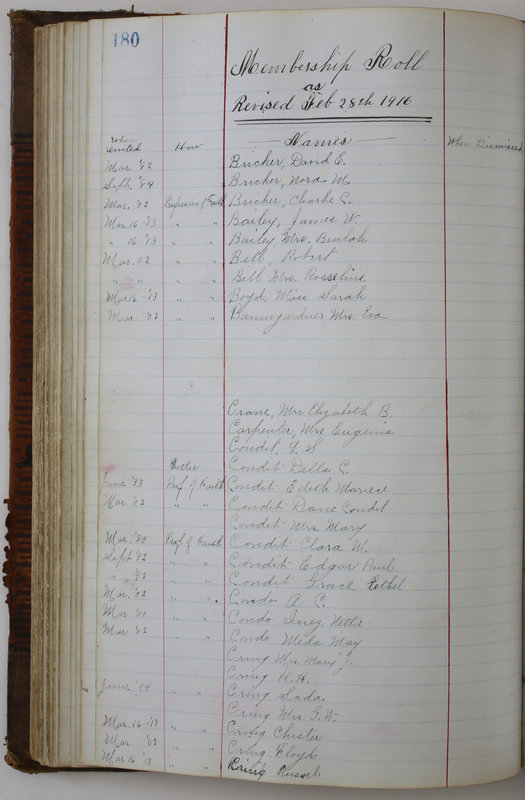 180
Membership Roll
as
Revised Feb 28th 1916
When united How Names When Dismissed
Mar. '92 Bricker, David E.
Sept. '84 Bricker, Nora M.
Mar. '02 Profession of Faith Bricker, Charlie C.
Mar 16-'13 " " Bailey, James W.
" 16-'13 " " Bailey, Mrs. Beulah
Mar. 02 " " Bell, Robert
" " " " Bell Mrs. Rosseline
Mar 16-'13 " " Boyd, Miss Sarah
Mar. '02 " " Baumgardner Mrs. Eva
Crane, Mrs Elizabeth B.
Carpenter, Mrs Eugenia
Condit, I. S
Letter Condit Della C.
June '93 Prof. of Faith Condit Edith
Mar. '02 " " Condit Condit
Condit Mrs. Mary
Mar. '89 Prof. of Faith Condit Clara M.
Sept '92 " " Condit Edgar Paul
" 92 " " Condit Grace Ethel
Mar. '02 " " Condo A. C.
Mar '00 " " Condo Inez Nettie
Mar '02 " " Condo Meda May
Cring Mrs. Mary J.
Cring H. H.
June '99 " " Cring Lada
Cring Mrs G. W.
Mar. 16-13 " " Cring Chester
Mar. '02 " " Cring Floyd
Mar 16 '13 " " Cring Russel